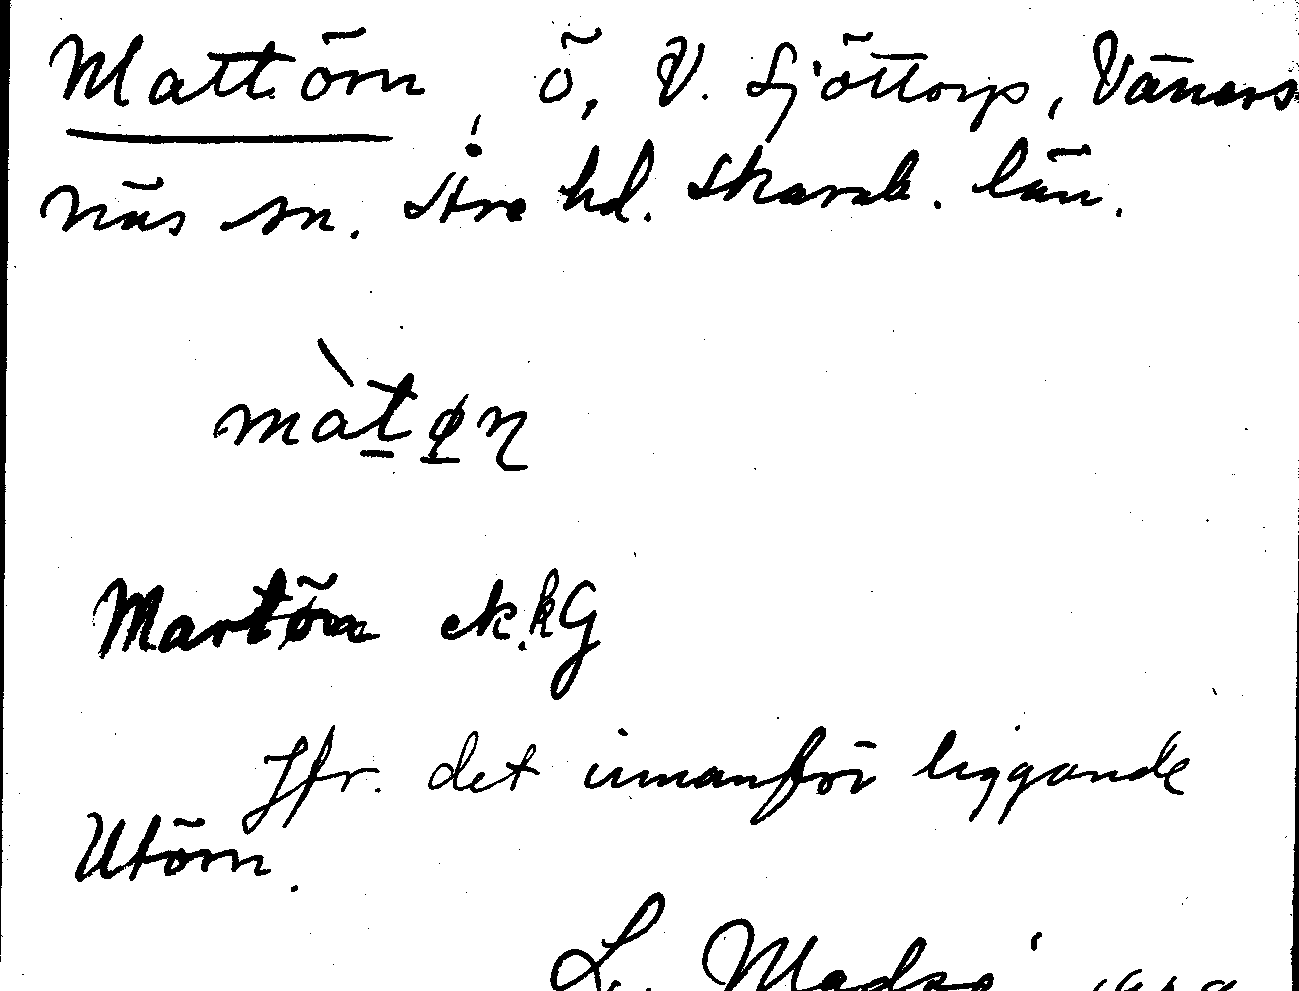 Mattörn, ö, V. Sjöttorp, Väners
näs sn. Åse hd. Skarab. län.
màtøn
Martön ek.kG
Jfr. det innanför liggande
Utörn.
L.